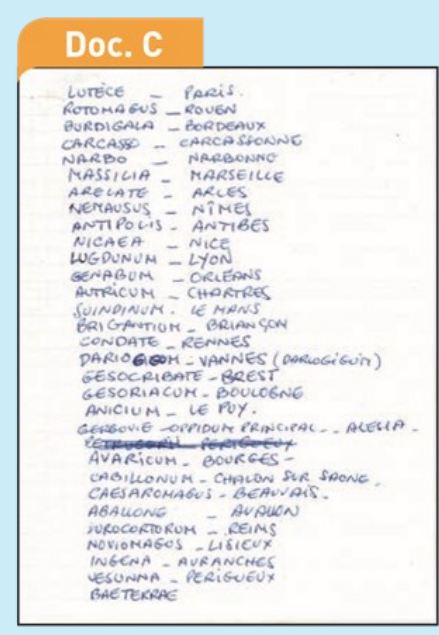 Doc. C
LUTÈCE _ PARIS.
ROTOMAGUS _ ROUEN
BURDIGALA _ BORDEAUX
CARCASSO _ CARCASSONNE
NARBO _ NARBONNE
MASSILIA _ MARSEILLE
ARELATE _ ARLES
NEMAUSUS _ NÎMES
ANTIPOLIS - ANTIBES
NICAEA _ NICE
LUGDUNUM _ LYON
GENABUM _ ORLÉANS
AUTRICUM _ CHARTRES
SUINDINUM. LE MANS
BRIGANTIUM _ BRIANÇON
CONDATE _ RENNES
VANNES (DARIOGIGUM)
GESOCRIBATE _ BREST
GESORIACUM _ BOULOGNE
ANICIUM _ LE PUY.
GERGOVIE - OPPIDUM PRINCIPAL _ _ ALESIA -
PERIGUEUX
AVARICUM _ BOURGES -
CABILLONUM - CHALON SUR SAONE.
CAESAROMAGUS - BEAUVAIS.
ABALLONE _ AVALLON
DUROCORTORUM _ REIMS
NOVIOMAGOS _ LISIEUX
INGENA _ AVRANCHES
VESUNNA _ PERIGUEUX
BAETERRAE